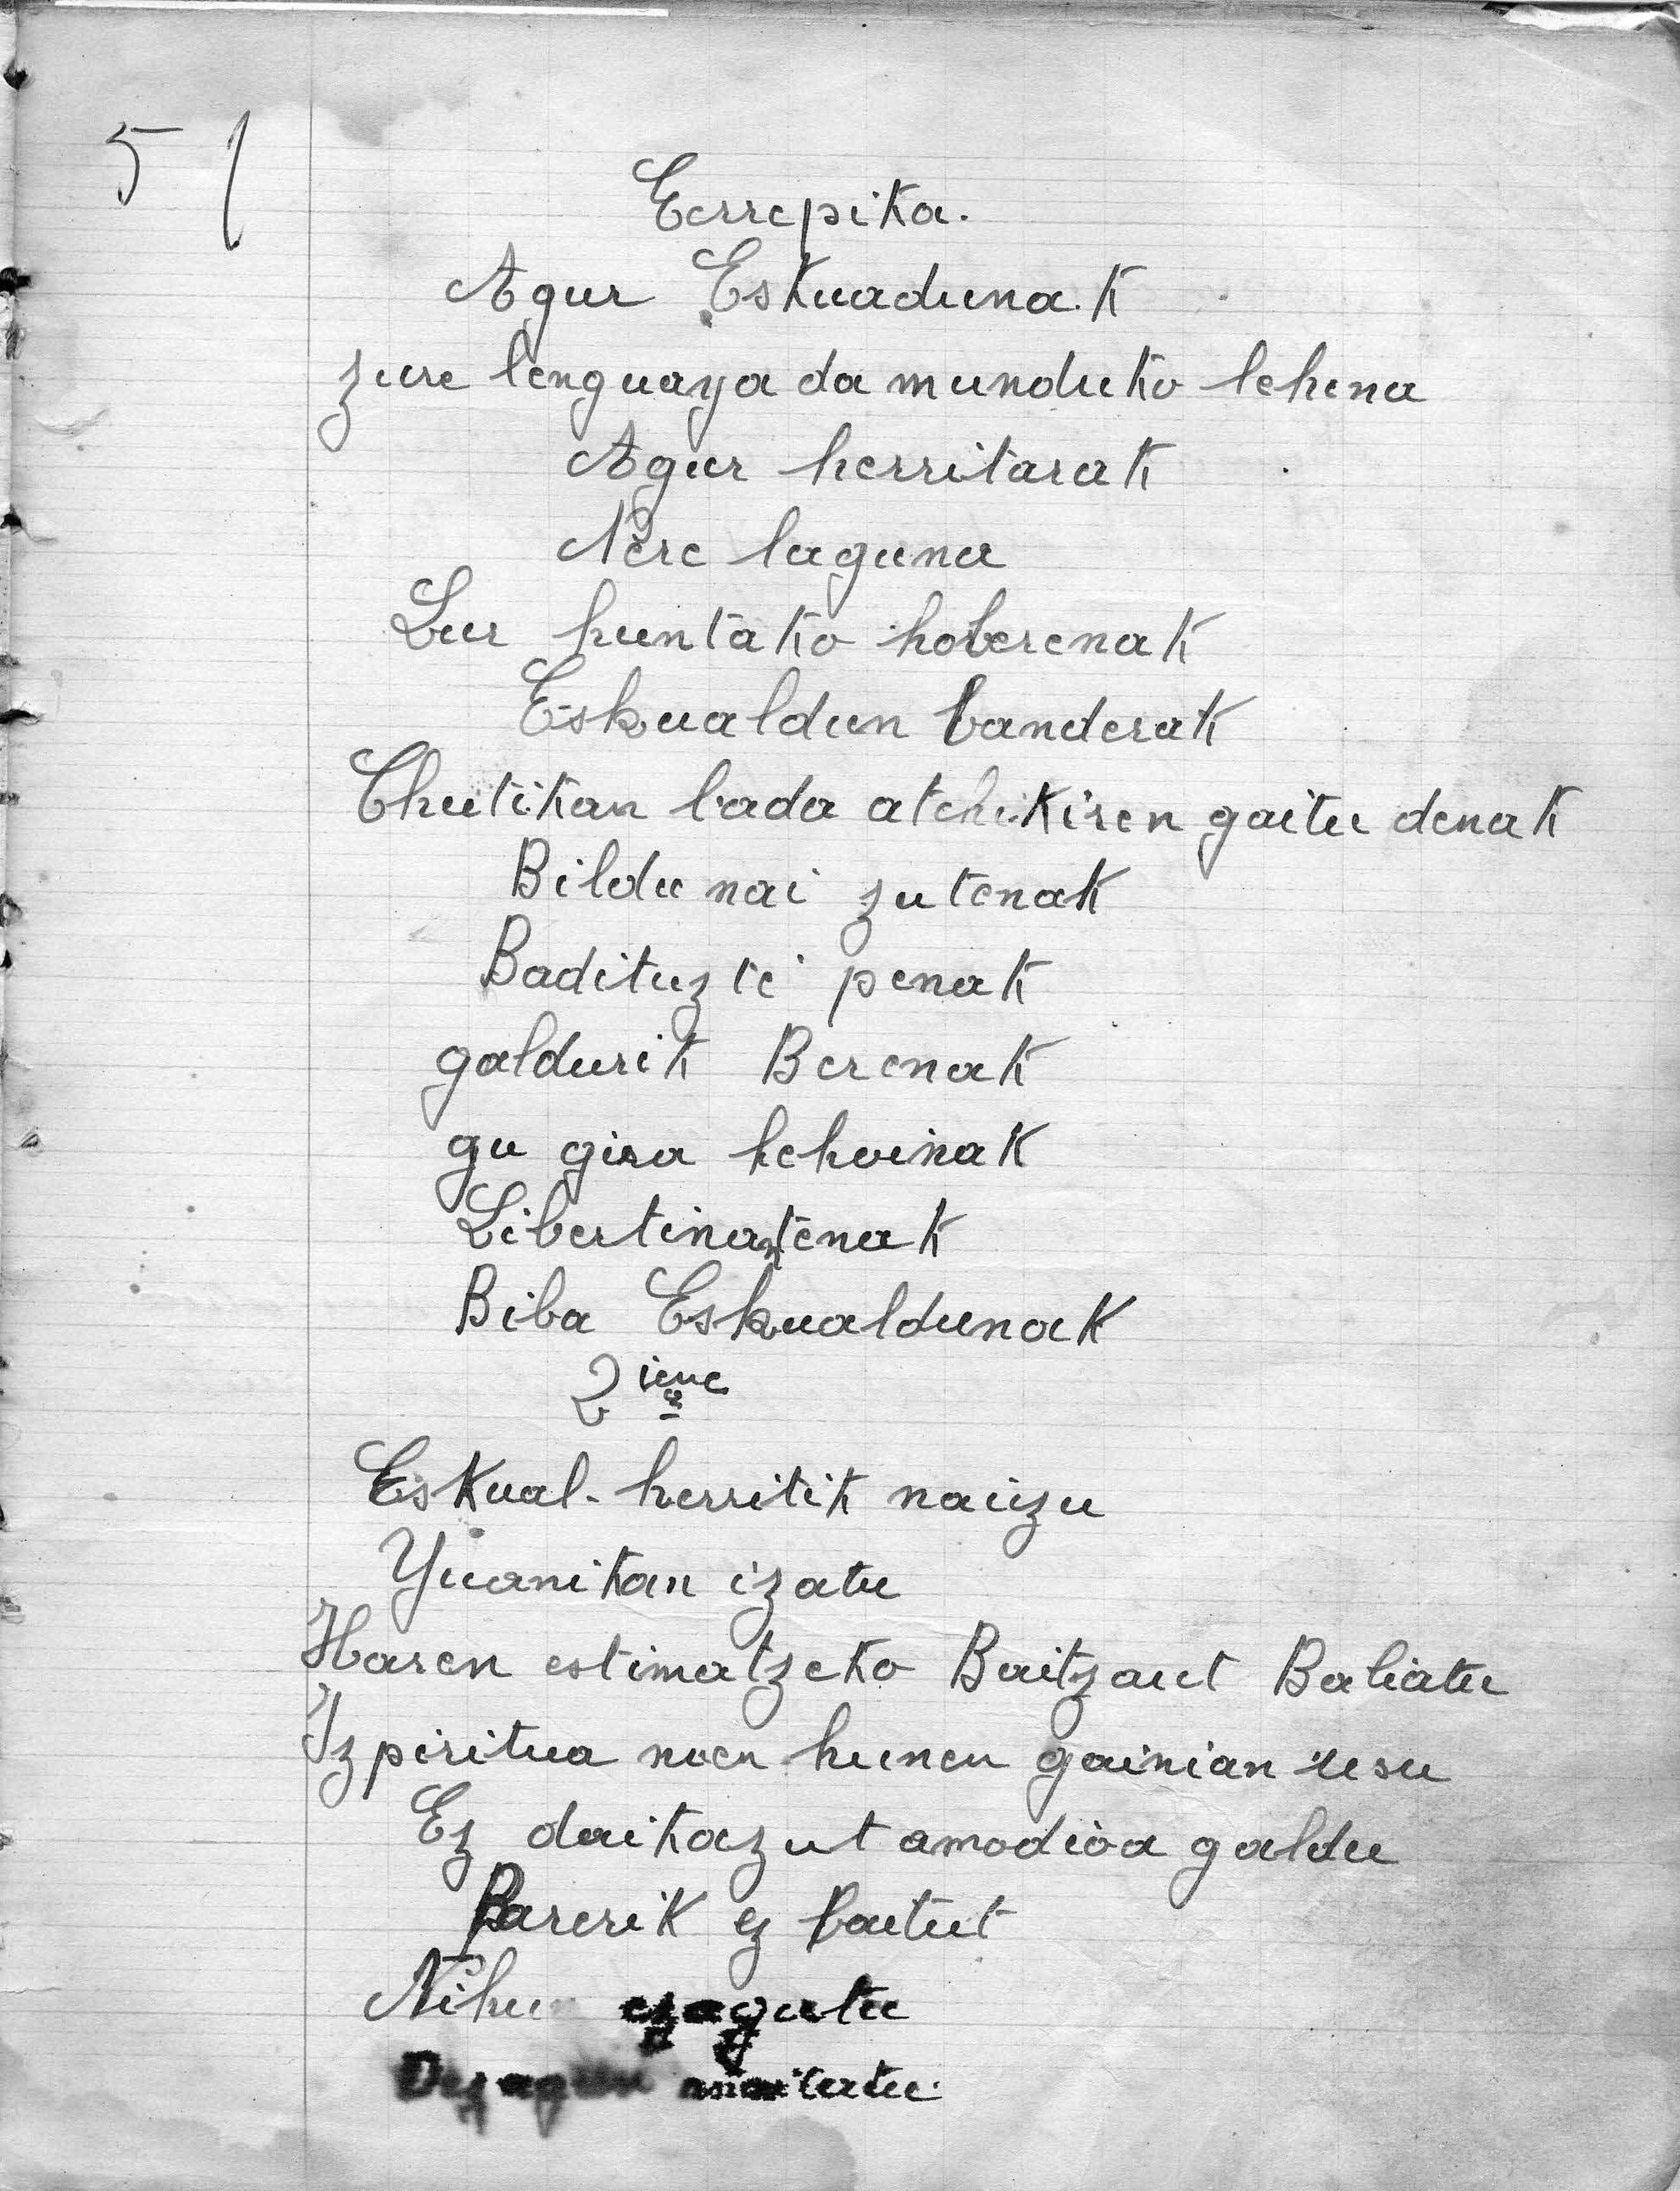 51
Eerrepika.
Agur Eskuaduna.k
zure lenguaya da munduko lehena
Agur herritarak
Nere laguna
Lur huntako hoberenak
Eskualdun banderak
Chutikan bada atchikiren gaitu denak
Bildu nai zutenak
Badituzte penak
galdurik Berenak
gu gira hehoinak
Libertinatenak
Biba Eskualdunak
2ieme
Eskual-herritik naizu
Yuanikan izatu
Haren estimatzeko Baitzaut Baliatu
Izpiritua noen hunen gainian usu
Ez daikazut amodioa galdu
Parerik ez baitut
Nihun ezagutu
Dezagun imitatu.